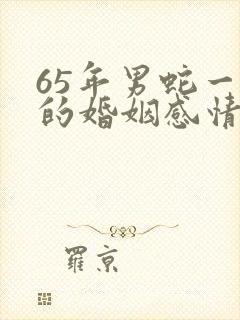 65年男蛇一
的婚姻感情
羅京